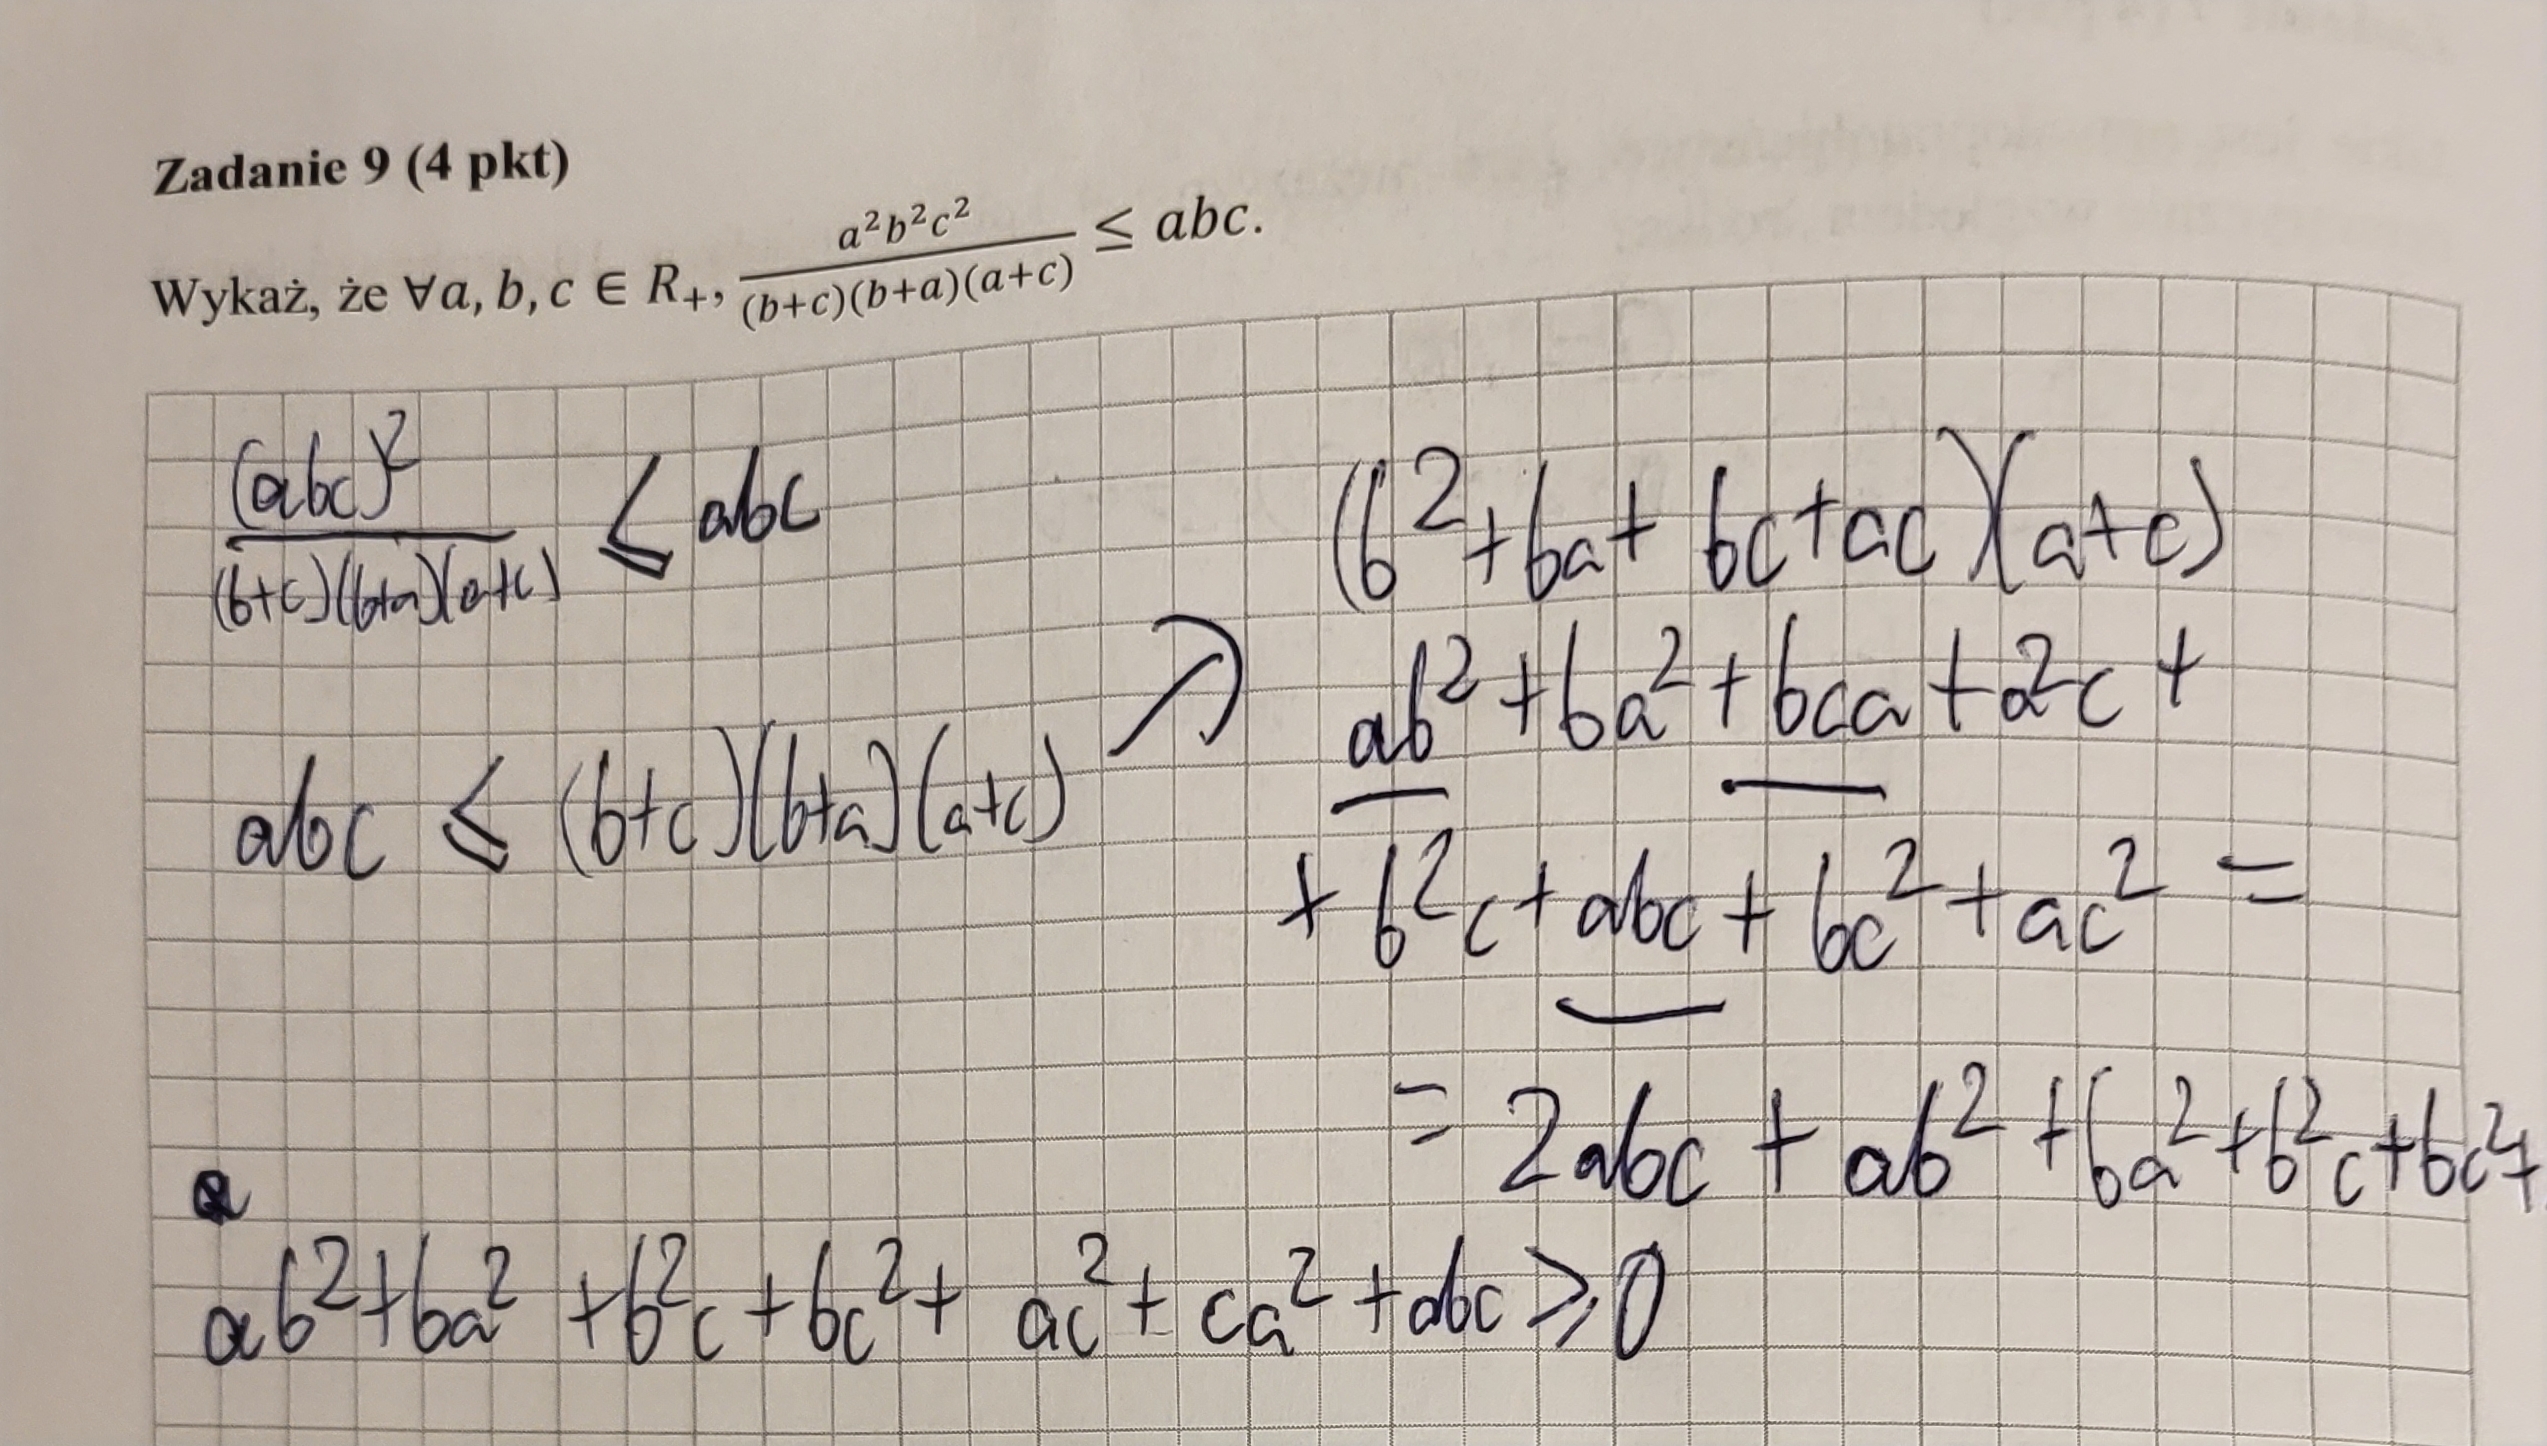 Zadanie 9 (4 pkt)
Wykaż, że ∀a, b, c ∈ R₊, a²b²c² / (b+c)(b+a)(a+c) ≤ abc.
(abc)² / (b+c)(b+a)(a+c) ≤ abc
abc ≤ (b+c)(b+a)(a+c)
(b²+ba+bc+ac)(a+c)
ab²+ba²+bca+a²c+
+b²c+abc+bc²+ac²=
=2abc+ab²+ba²+b²c+bc²+
ab²+ba²+b²c+bc²+ac²+ca²+abc≥0